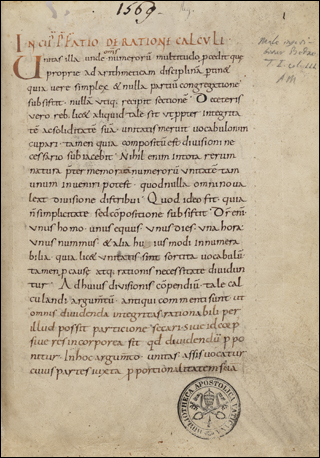 1569
INCIP̄ P̄FATIO DE RATIONE CALCULI·
Unitas illa unde omnis numerorū multitudo p̄cedit que
proprie ad arithmeticam disciplinā ptinet
quia vere simplex & nulla partiū congregatione
subsistit · nullā utiq; recipit sectionē · De ceteris
vero reb; lic& aliquid tale sit ut ppter integrita
tē ac soliditatē suā unitatis meruit vocabulo nun
cupari · tamen quia compositū est divisioni ne
cessario subiacebit · Nihil enim in tota rerum
natura p̄ter memoratā numerorū unitatē tam
unum inveniri potest · quod nulla omnino va
leat divisione distribui · Quod ideo fit · quia
n̄ simplicitate sed cōpositione subsistit · Dr̄ eni
unus homo · unus equus · unus dies · una hora
unus nummus · & alia huius modi innumera
bilia · quae lic& unitatis sint sortita vocabulū
tamen p causae atq; rationis necessitate dividun
tur · Ad huius divisionis cōpendiū · tale cal
culandi argumtū · antiqui commenti sunt ut
omnis dividenda integritas rationabili per
illud possit particione secari sive id corp
sive res incorporea sit qd dividendū p po
nitur · In hoc argumto unitas assis vocatur
cuius partes iuxta p portionalitatem sua
BIBLIOTHECA APOSTOLICA VATICANA